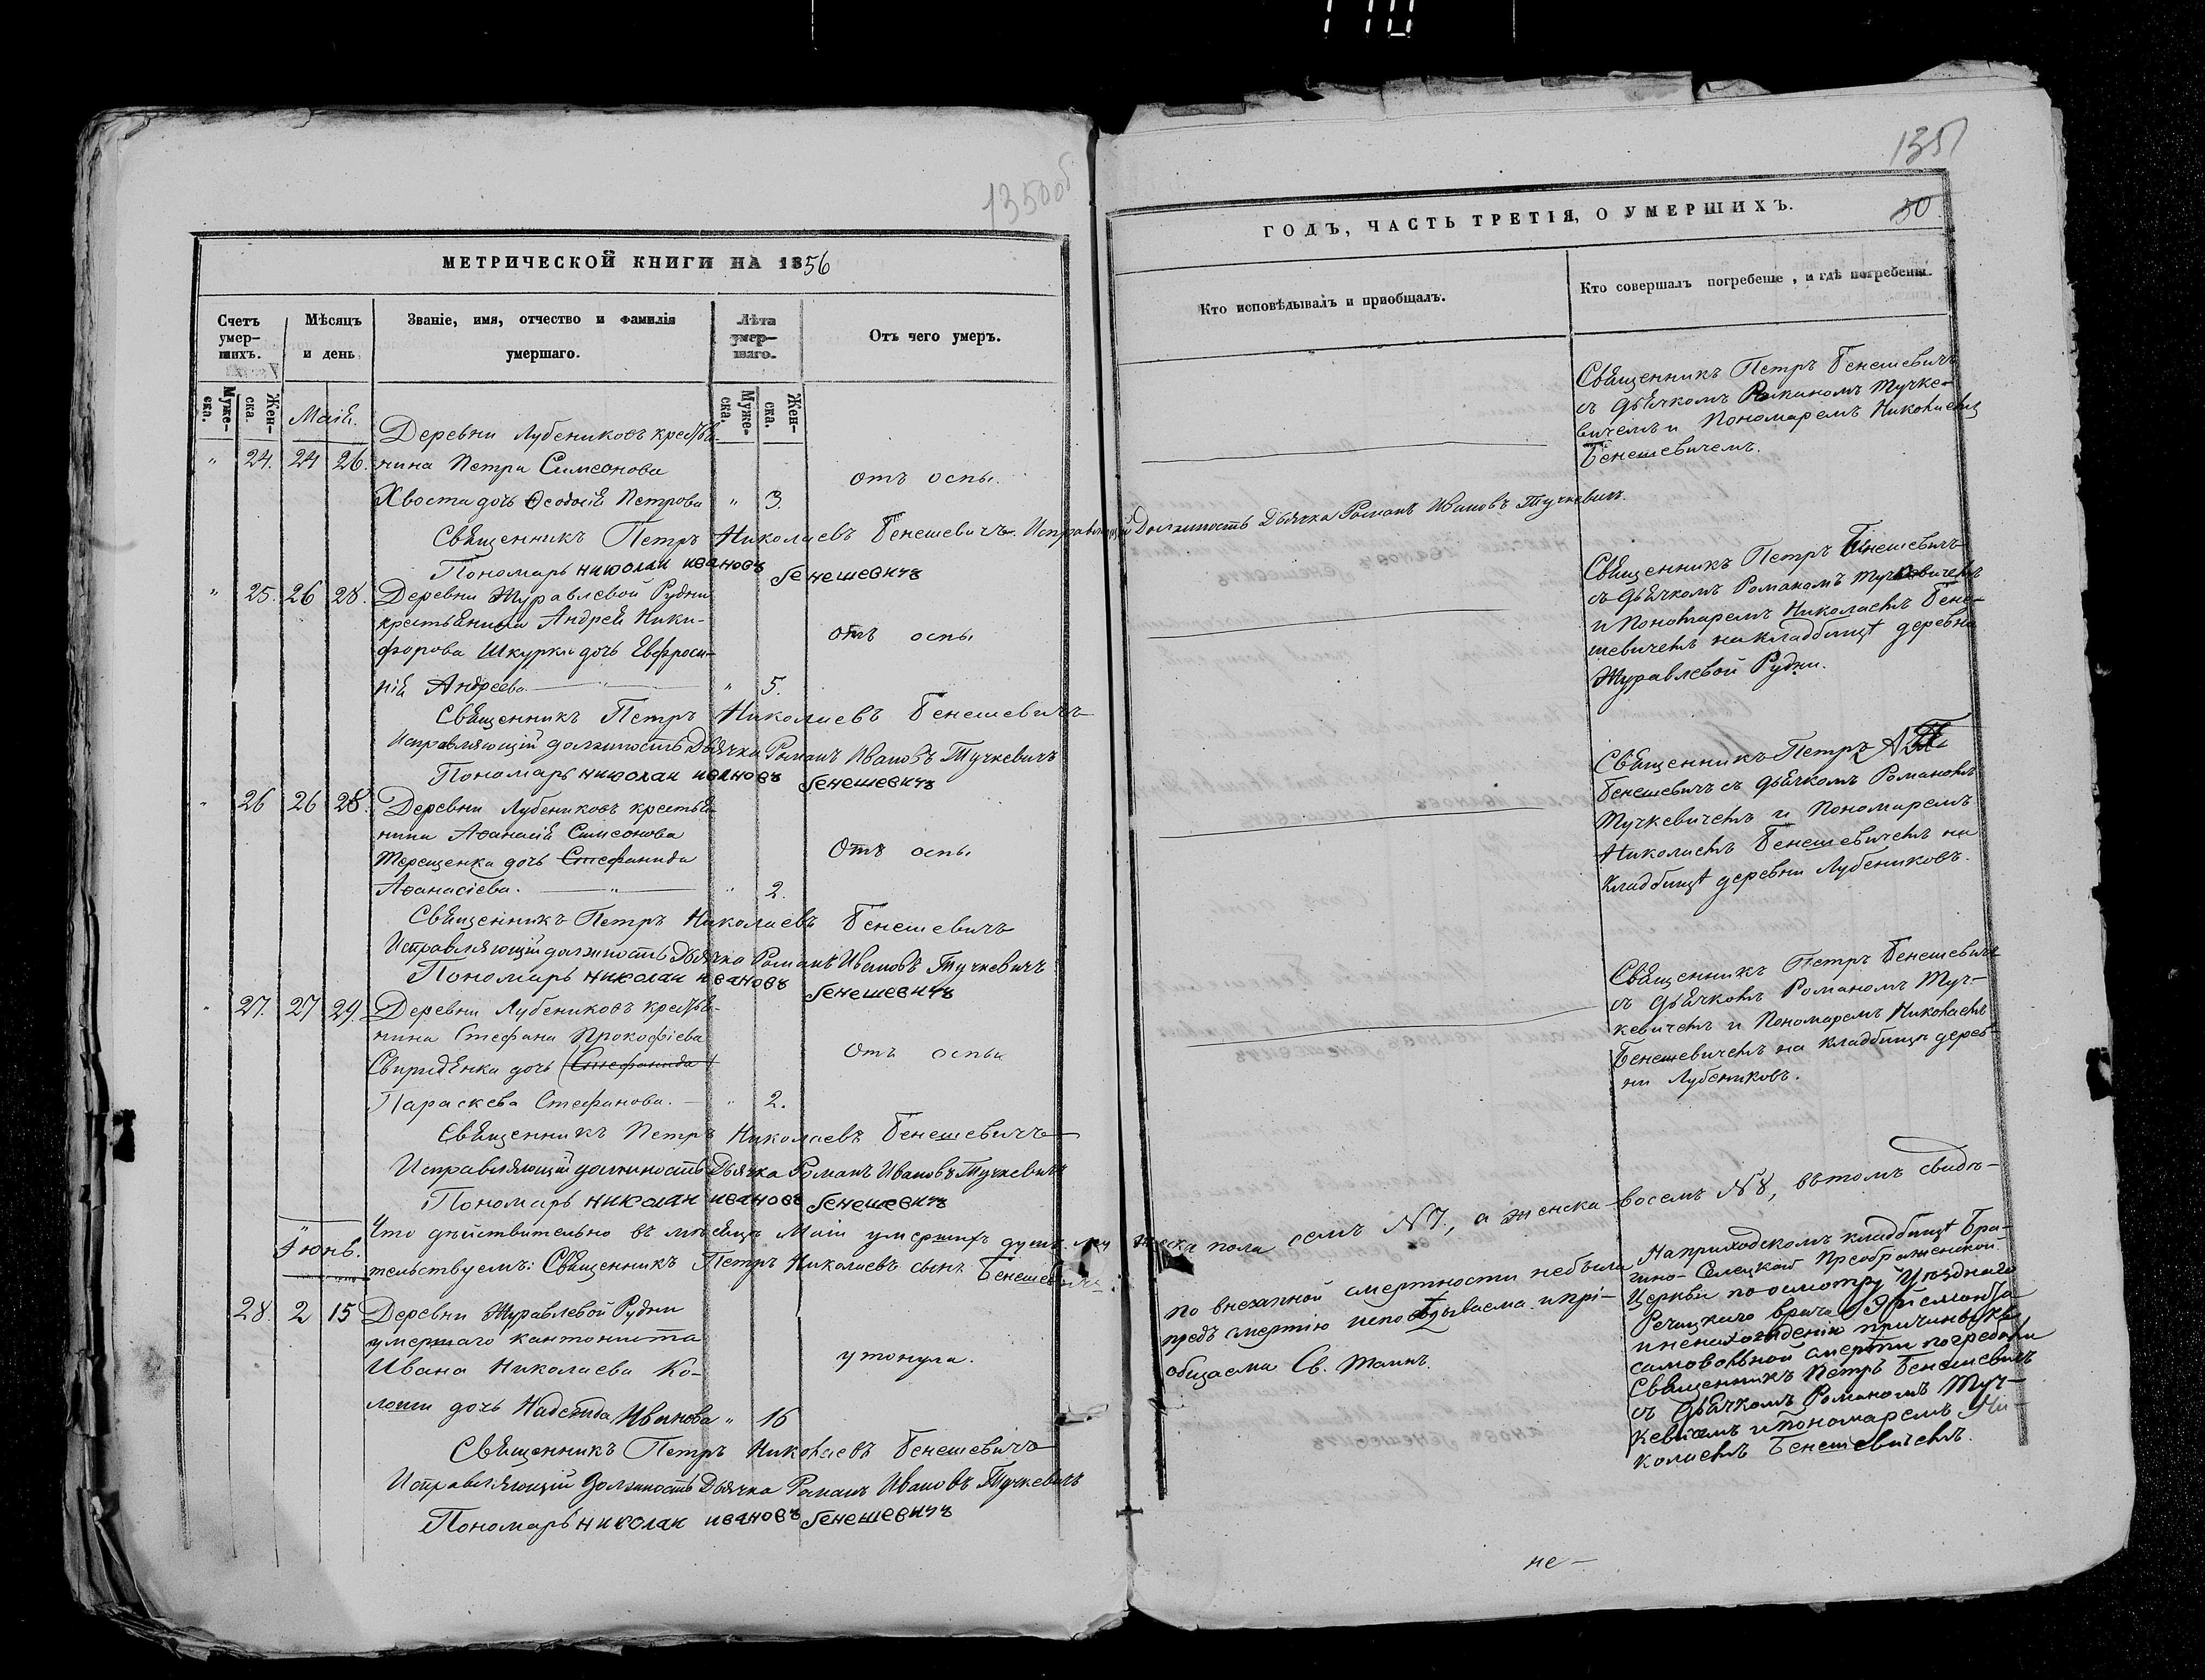 1350об
МЕТРИЧЕСКОЙ КНИГИ НА 1856
Счетъ умер-шихъ.
Мѣсяцъ и день
Званіе, имя, отчество и фамилія умершаго.
Лѣта умер-шаго.
Отъ чего умеръ.
Муже-ска.
Жен-ска.
Муже-ска.
Жен-ска.
Маій.
Деревни Лубениковъ крестья-
" 24. 24 26. нина Петра Симеонова
отъ оспы.
Хвоста дочь Ѳеодосія Петрова " 3.
Священникъ Петръ Николаевъ Бенешевичъ. Исправляющій Должность Дьячка Романъ Ивановъ Тучкевичъ.
Пономарь николаи ивановъ бенешевичъ
" 25. 26 28. Деревни Журавлевой Рудни
крестьянина Андрея Ники-
отъ оспы
форова Шкурка дочь Евфроси-
нія Андреева " 5.
Священникъ Петръ Николаевъ Бенешевичъ
Исправляющій должность Дьячка Романъ Ивановъ Тучкевичъ
Пономарь николаи ивановъ бенешевичъ
" 26 26 28. Деревни Лубениковъ крестья-
нина Аѳанасія Симеонова
Отъ оспы
Терещенка дочь Стефанида
Аѳанасіева. " 2.
Священникъ Петръ Николаевъ Бенешевичъ
Исправляющій должность Дьячка Романъ Ивановъ Тучкевичъ
Пономарь николаи ивановъ бенешевичъ
" 27. 27 29. Деревни Лубениковъ крестья-
нина Стефана Прокофіева
Отъ оспы
Свиридѣнка дочь (Стефанида)
Параскева Стефанова. " 2.
Священникъ Петръ Николаевъ Бенешевичъ
Исправляющій должность Дьячка Романъ Ивановъ Тучкевичъ
Пономарь николаи ивановъ бенешевичъ
Что дѣйствительно въ мѣсяцѣ Маіи умершихъ душъ мужеска пола семь N7, а женска восемь N8, вътомъ свидѣ-
тельствуемъ: Священникъ Петръ Николаевъ сынъ Бенешевичъ
Іюнь.
28. 2 15 Деревни Журавлевой Рудни
умершаго кантониста
утонула.
Ивана Николаева Ко-
дочь Надежда Иванова " 16
Священникъ Петръ Николаевъ Бенешевичъ
Исправляющій Должность Дьячка Романъ Ивановъ Тучкевичъ
Пономарь николаи ивановъ бенешевичъ
1351
50
ГОДЪ, ЧАСТЬ ТРЕТІЯ, О УМЕРШИХЪ.
Кто исповѣдывалъ и пріобщалъ.
Кто совершалъ погребеніе, и гдѣ погребены.
Священникъ Петръ Бенешевичъ
съ дьячкомъ Романомъ Тучке-
вичемъ и Пономаремъ Николаемъ
Бенешевичемъ.
Священникъ Петръ Бенешевичъ
съ дьячкомъ Романомъ Тучкевичемъ
и Пономаремъ Николаемъ Бене-
шевичемъ на кладбищѣ деревни
Журавлевой Рудни.
Священникъ Петръ
Бенешевичъ съ дьячкомъ Романомъ
Тучкевичемъ и Пономаремъ
Николаемъ Бенешевичемъ на
кладбищѣ деревни Лубениковъ.
Священникъ Петръ Бенешевичъ
съ дьячкомъ Романомъ Туч-
кевичемъ и Пономаремъ Николаемъ
Бенешевичемъ на кладбищѣ дерев-
ни Лубениковъ.
По внезапной смертности небыла
предъ смертію исповѣдываема и прі-
общаема Св. Таинъ.
На приходскомъ кладбищѣ Бра-
гино-Селецкой Преображенской
Церкви по осмотру Уѣзднаго
Речицкаго врача
и ненахожденіи причины къ
самовольной смерти погребали
Священникъ Петръ Бенешевичъ
съ Дьячкомъ Романомъ Туч-
кевичемъ и пономаремъ Ни-
колаемъ Бенешевичемъ.
не-